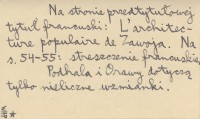 Na stronie przedtytułowej
tytuł francuski: L'architec-
ture populaire de Zawoja. Na
s. 54-55: streszczenie francuskie.
Podhala i Orawy dotyczą
tylko nieliczne wzmianki.